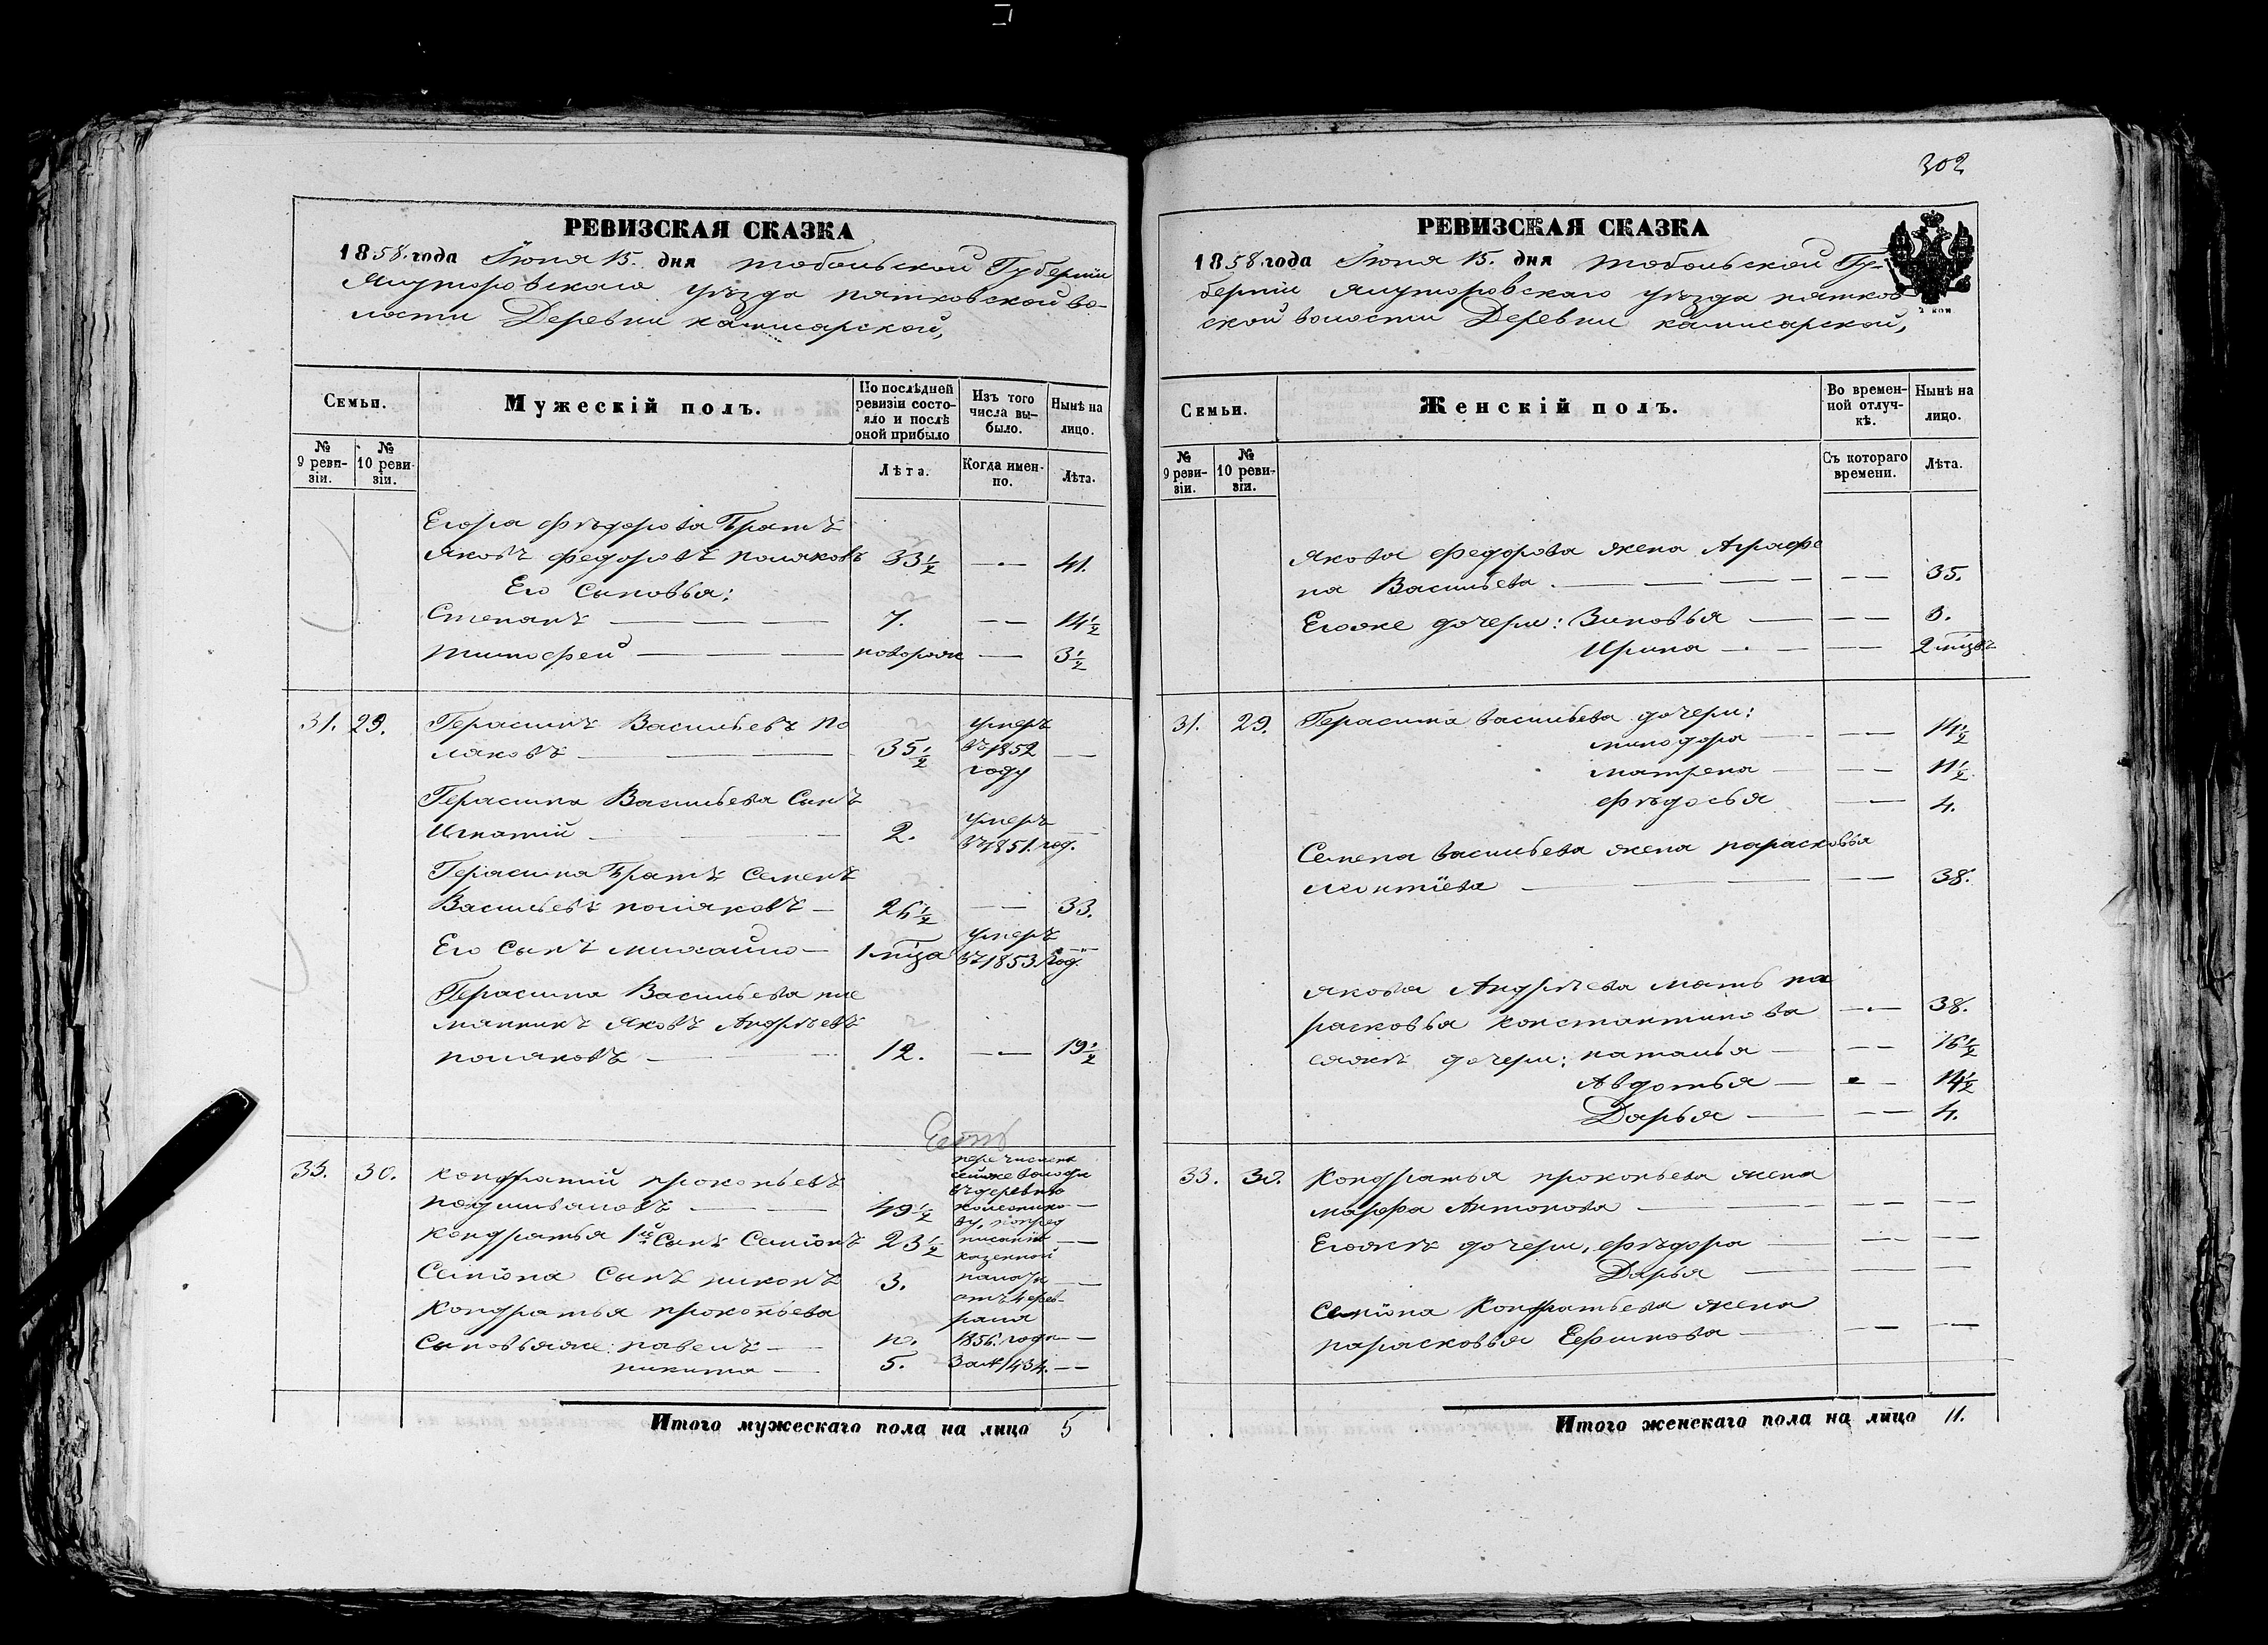 302
РЕВИЗСКАЯ СКАЗКА
1858. года Іюня 15. дня Тобольской Губерніи
Ялуторовскаго уѣзда пятковской во-
лости Деревни камисарской,
Семьи.
Мужескій полъ.
По послѣдней ревизіи состо-яло и послѣ оной прибыло
Изъ того числа вы-было.
Нынѣ на лицо.
№ 9 реви-зіи.
№ 10 реви-зіи.
Лѣта.
Когда имен-но.
Лѣта.
Егора Фѣдорова Братъ
Яковъ Федоровъ поляковъ 33½ — 41.
Его Сыновья:
Степанъ — 7. — 14½
Тимофей — новорож — 3½
31. 29. Герасимъ Васильевъ По умеръ
ляковъ — 35½ въ 1852 —
году
Герасима Васильева Сынъ
Игнатий — 2. умеръ въ 1851. год.
Герасима Братъ Семенъ
Васильевъ поляковъ — 26½ — 33.
Его Сынъ михайло — 1 мца умеръ въ 1853. год.
Герасима Васильева пле
мянникъ Яковъ Андрѣевъ
поляковъ — 12. — 19½
33. 30. Кондратий прокопьевъ
подшиваловъ — 49½ —
Кондратья 1й Сынъ Семіонъ 23½ —
Семіона Сынъ никонъ 3. —
Кондратья прокопьева
Сыновьяже: павелъ — —
никита — 5. —
перечислены
сейже волости
въ деревню
колеснико
ву, по пред
писанію
казенной
палаты
отъ 4 фев-
раля
1856. года
за № 1434.
Итого мужескаго пола на лицо 5
РЕВИЗСКАЯ СКАЗКА
1858. года Іюня 15. дня Тобольской Гу-
берніи Ялуторовскаго уѣзда пятков
ской волости Деревни камисарской,
Семьи.
Женскій полъ.
Во времен-ной отлуч-кѣ.
Нынѣ на лицо.
№ 9 реви-зіи.
№ 10 реви-зіи.
Съ котораго времени.
Лѣта.
Якова Федорова жена Аграфе
на Васильева — — 35.
Егоже дочери: Зиновья — — 8.
Ирина — — 2 мцвъ
31. 29. Герасима васильева дочери:
минодора — — 14½
матрена — — 11½
фѣдосья — 4.
Семена васильева жена парасковья
леонтіева — — 38.
Якова Андрѣева мать па
расковья константинова — 38.
еяжъ дочери: наталья — — 16½
Авдотья — — 14½
Дарья — — 4.
33. 30. Кондратья прокопьева жена
марфа Антонова — — —
Егожъ дочери, фѣдора — — —
Дарья — — —
Семіона Кондратьева жена
парасковья Ефимова — — —
Итого женскаго пола на лицо 11.